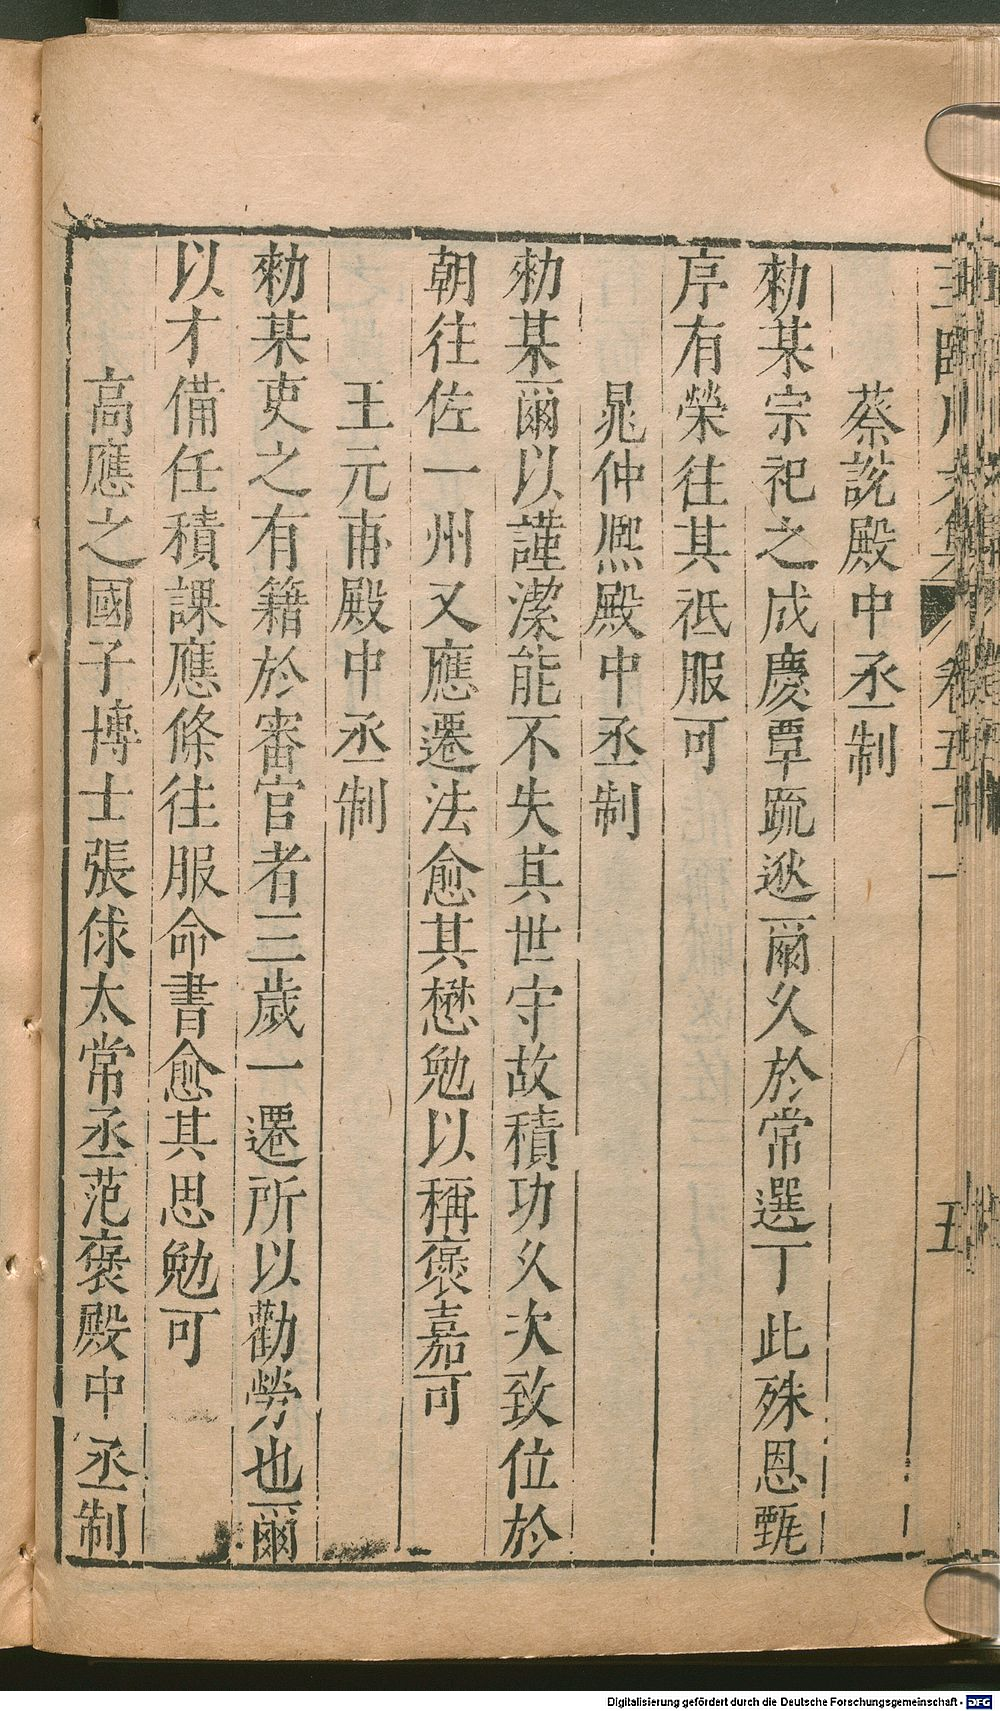 蔡說殿中丞制
勑某宗祀之成慶覃䟽逖爾久於常選丁此殊恩甄
序有榮往其祗服可
晁仲熈殿中丞制
勑某爾以謹潔能不失其世守故積功久次致位於
朝往佐一州又應遷法愈其懋勉以稱褒嘉可
王元甫殿中丞制
勑某吏之有籍於審官者三歲一遷所以勸勞也爾
以才備任積課應條往服命書愈其思勉可
高應之國子博士張俅太常丞范褒殿中丞制
卷五十一
五
Digitalisierung gefördert durch die Deutsche Forschungsgemeinschaft - DFG